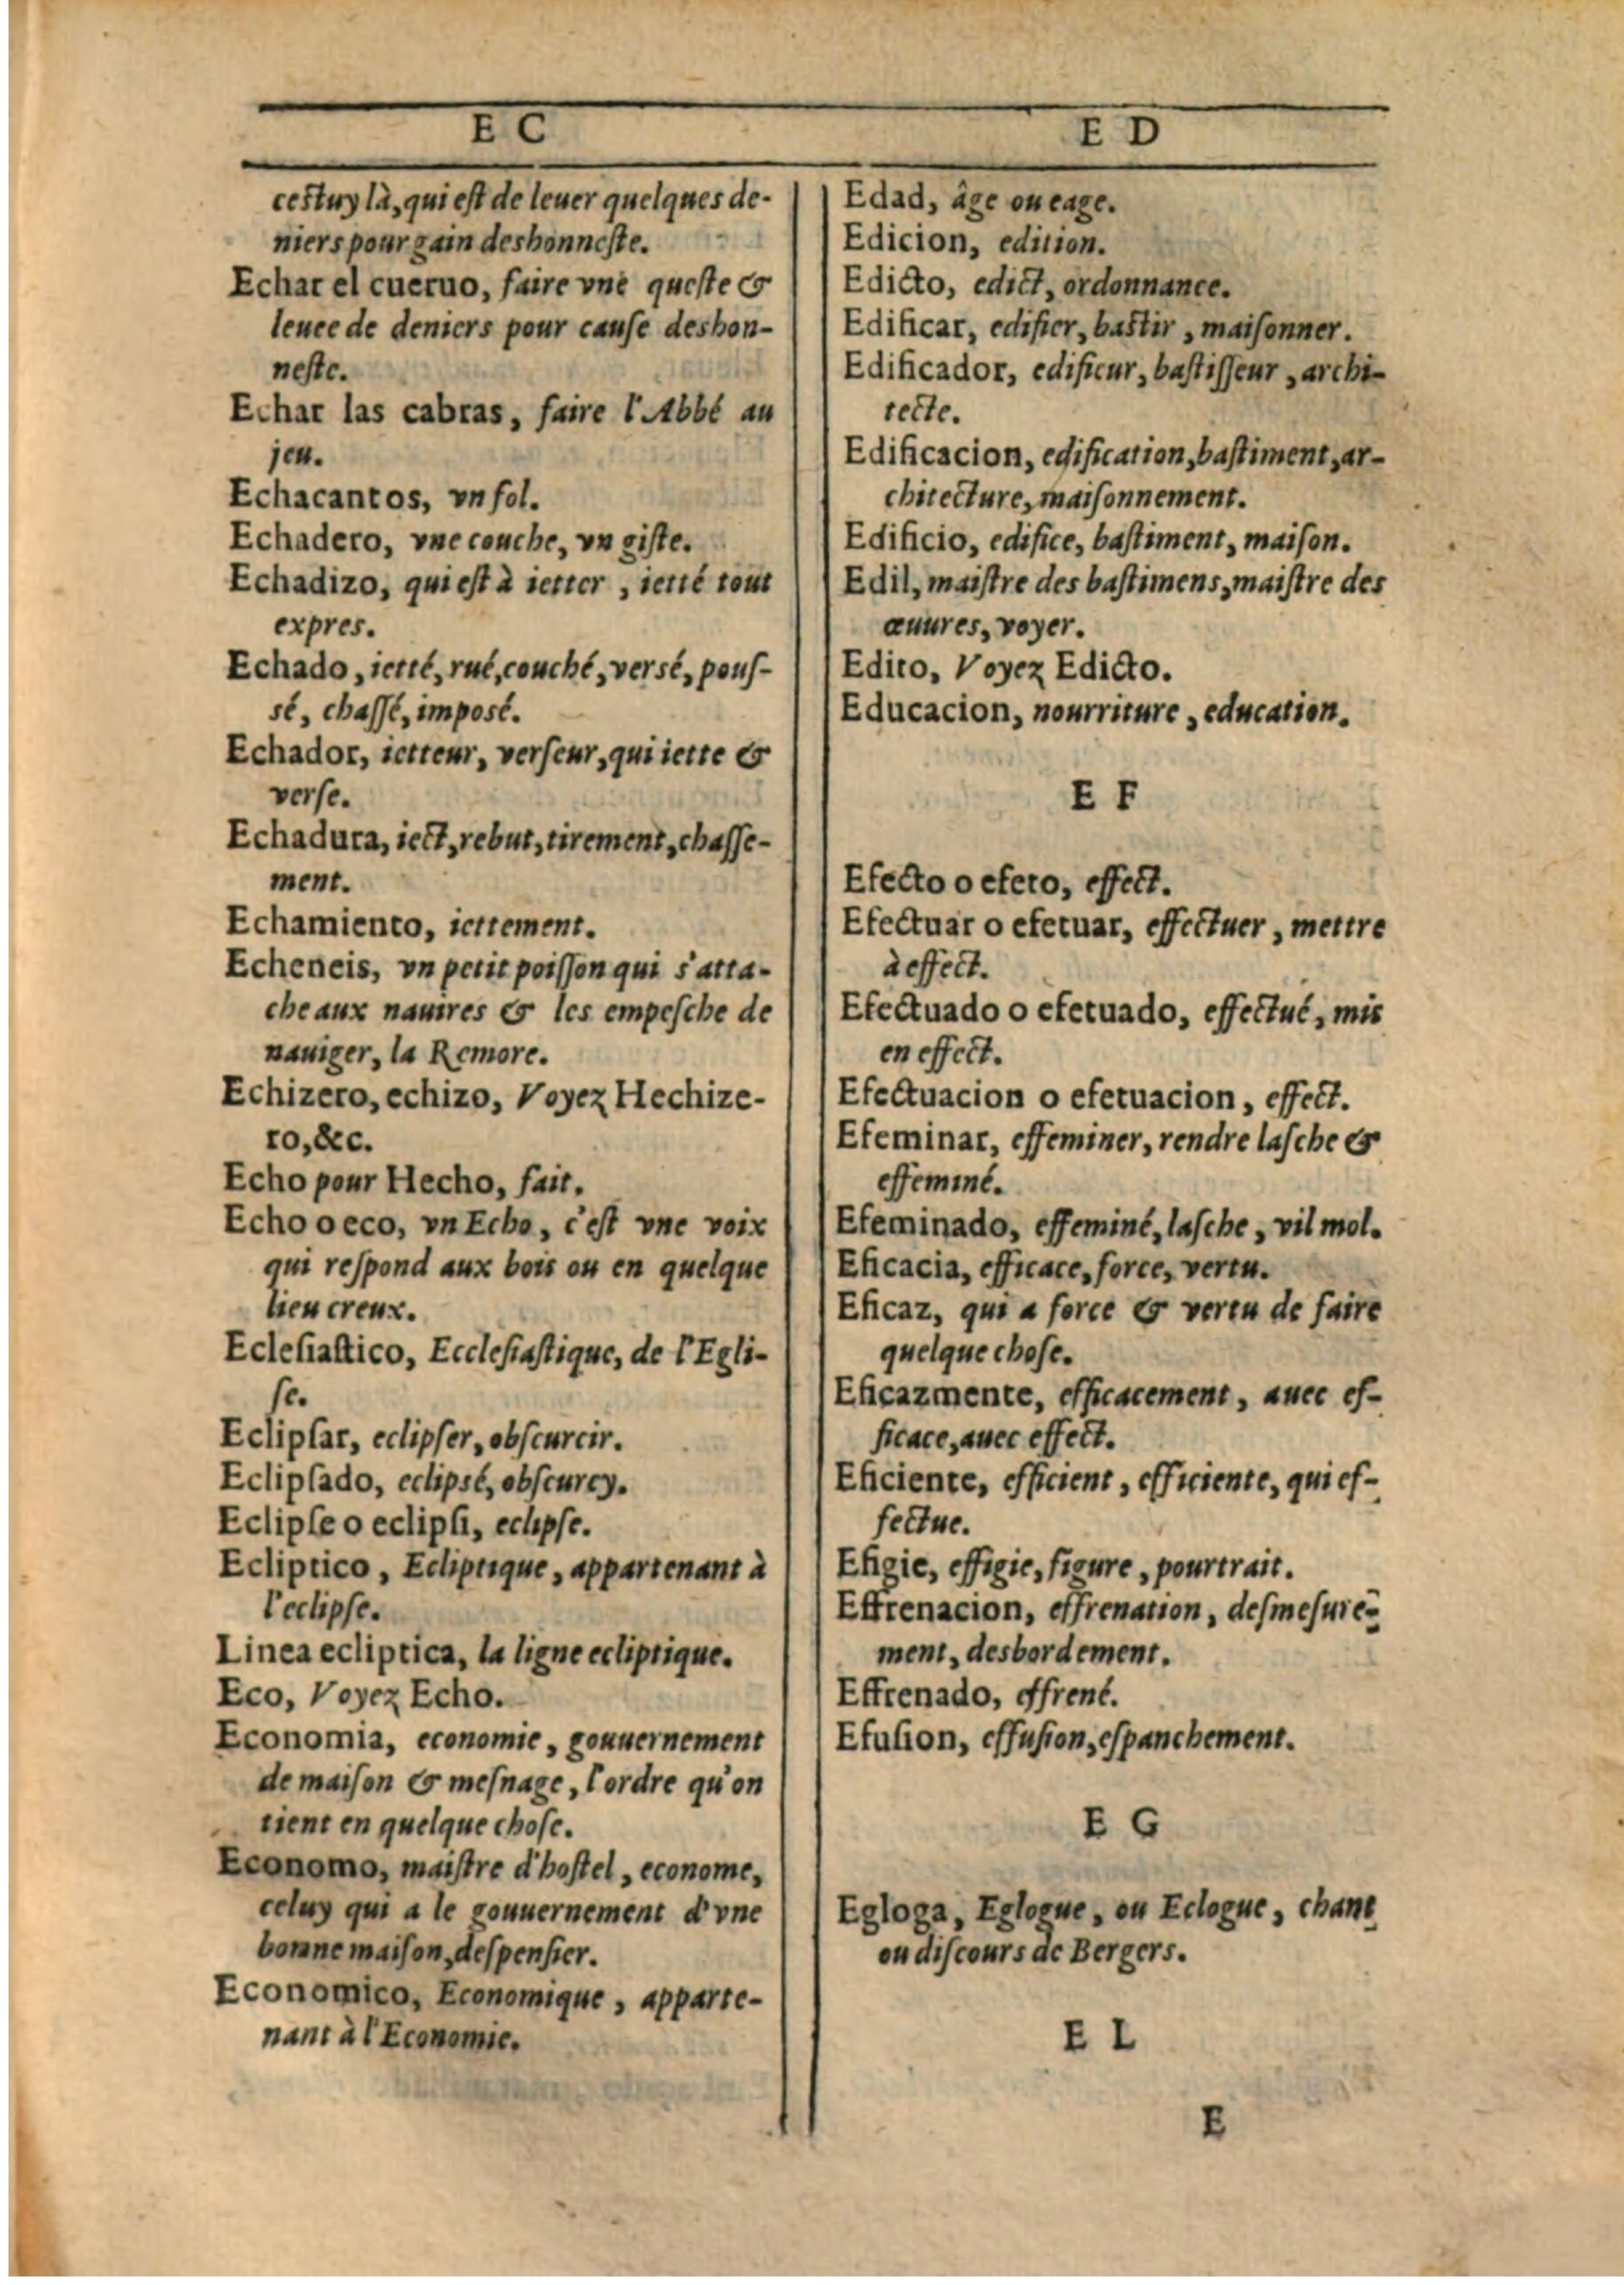 E C
ceſtuy là, qui eſt de leuer quelques de-
niers pour gain deshonneſte.
Echar el cueruo, faire vne queſte &
leuee de deniers pour cauſe deshon-
neſte.
Echar las cabras, faire l'Abbé au
jeu.
Echacantos, vn fol.
Echadero, vne couche, vn giſte.
Echadizo, qui eſt à ietter, ietté tout
expres.
Echado, ietté, rué, couché, versé, pouſ-
sé, chaſſé, imposé.
Echador, ietteur, verſeur, qui iette &
verſe.
Echadura, iect, rebut, tirement, chaſſe-
ment.
Echamiento, iettement.
Echeneis, vn petit poiſſon qui s'atta-
che aux nauires & les empeſche de
nauiger, la Remore.
Echizero, echizo, Voyez Hechize-
ro, &c.
Echo pour Hecho, fait.
Echo o eco, vn Echo, c'eſt vne voix
qui reſpond aux bois ou en quelque
lieu creux.
Ecleſiaſtico, Eccleſiaſtique, de l'Egli-
ſe.
Eclipſar, eclipſer, obſcurcir.
Eclipſado, eclipsé, obſcurcy.
Eclipſe o eclipſi, eclipſe.
Ecliptico, Ecliptique, appartenant à
l'eclipſe.
Linea ecliptica, la ligne ecliptique.
Eco, Voyez Echo.
Economia, economie, gouuernement
de maiſon & meſnage, l'ordre qu'on
tient en quelque choſe.
Economo, maiſtre d'hoſtel, econome,
celuy qui a le gouuernement d'vne
bonne maiſon, deſpenſier.
Economico, Economique, apparte-
nant à l'Economie.
E D
Edad, âge ou eage.
Edicion, edition.
Edicto, edict, ordonnance.
Edificar, edifier, baſtir, maiſonner.
Edificador, edificur, baſtiſſeur, archi-
tecte.
Edificacion, edification, baſtiment, ar-
chitecture, maiſonnement.
Edificio, edifice, baſtiment, maiſon.
Edil, maiſtre des baſtimens, maiſtre des
œuures, voyer.
Edito, Voyez Edicto.
Educacion, nourriture, education.
E F
Efecto o efeto, effect.
Efectuar o efetuar, effectuer, mettre
à effect.
Efectuado o efetuado, effectué, mis
en effect.
Efectuacion o efetuacion, effect.
Efeminar, effeminer, rendre laſche &
effeminé.
Efeminado, effeminé, laſche, vil mol.
Eficacia, efficace, force, vertu.
Eficaz, qui a force & vertu de faire
quelque choſe.
Eficazmente, efficacement, auec ef-
ficace, auec effect.
Eficiente, efficient, efficiente, qui ef-
fectue.
Efigie, effigie, figure, pourtrait.
Effrenacion, effrenation, deſmeſure-
ment, desbordement.
Effrenado, effrené.
Efuſion, effuſion, eſpanchement.
E G
Egloga, Eglogue, ou Eclogue, chant
ou diſcours de Bergers.
E L
E